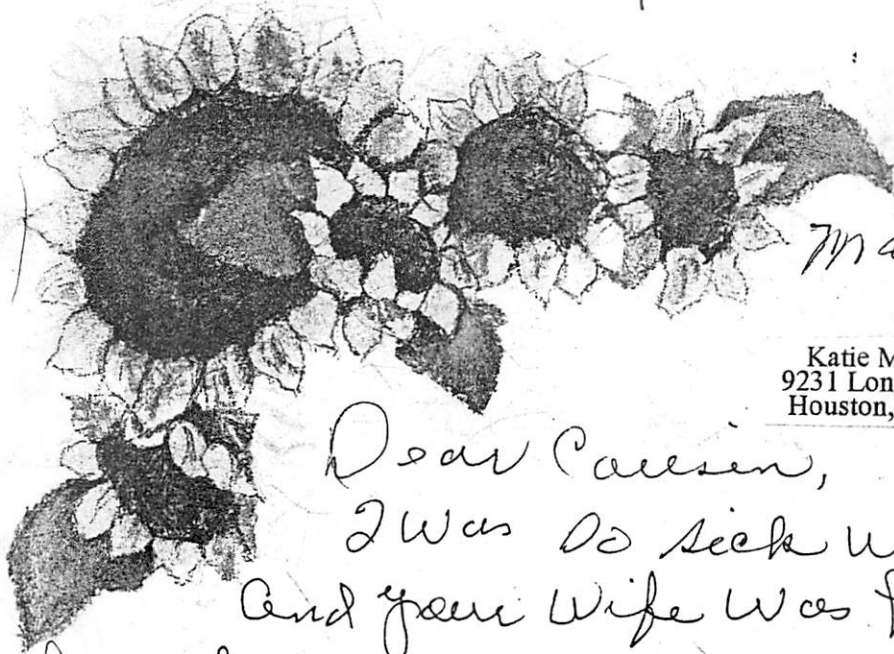 Ma
Katie M
9231 Lon
Houston,
Dear Cousin,
I was so sick w
and your wife was